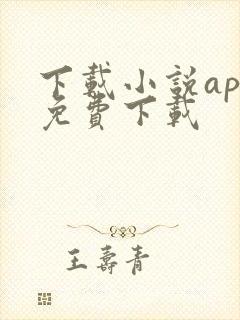 下載小説ap
免費下載
王壽青